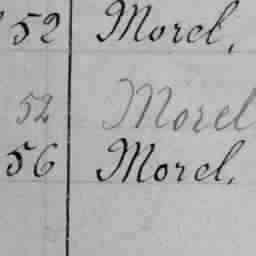 52 Morel,
52 Morel
56 Morel.